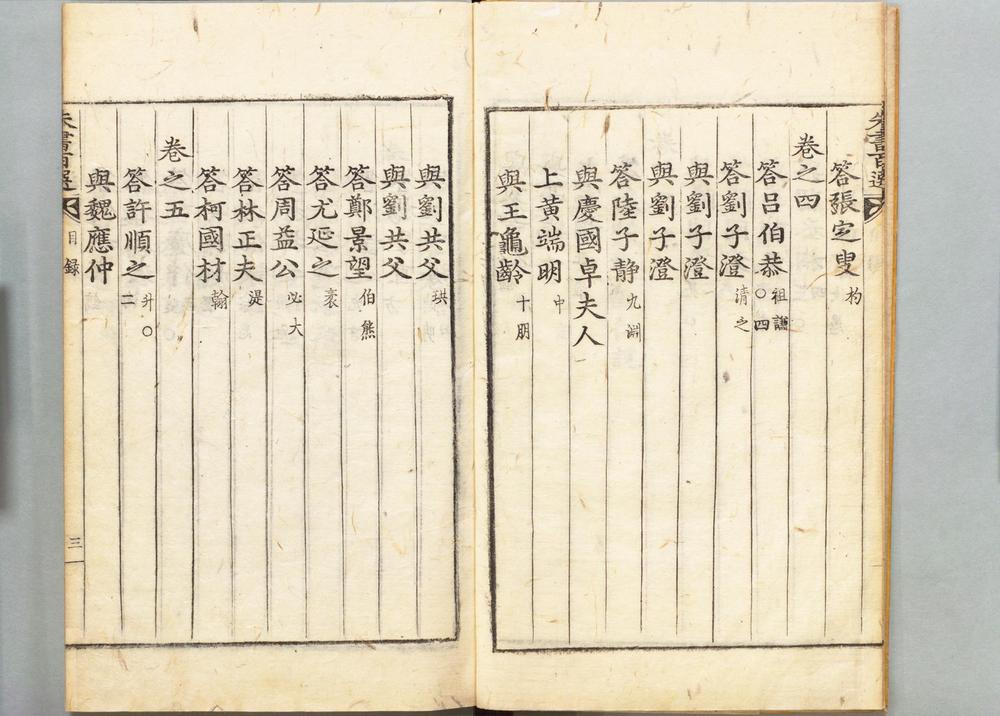 朱書百選
答張定叟 杓
卷之四
答呂伯恭 祖謙○四
答劉子澄 清之
與劉子澄
與劉子澄
答陸子静 九淵
與慶國卓夫人
上黄端明 中
與王龜齡 十朋
與劉共父 珙
與劉共父
答鄭景望 伯熊
答尤延之 袤
答周益公 必大
答林正夫 湜
答柯國材 翰
卷之五
答許順之 升○二
與魏應仲
朱書百選 目録 三